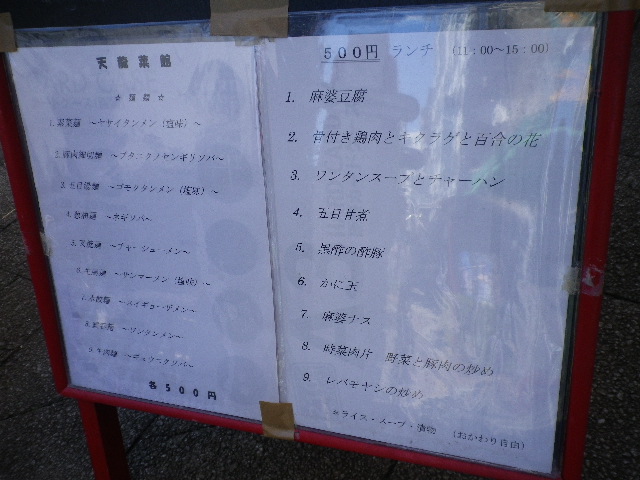 天龍菜館
☆ 麺類 ☆
1. 野菜麺 ～ヤサイタンメン（塩味）～
～ブタニクノセンギリソバ～
3. 五目湯麺 ～ゴモクタンメン（塩味）～
～ネギソバ～
～チャーシューメン～
～サンマーメン（塩味）～
～スイギョーザメン～
～ワンタンメン～
9. 牛肉麺 ～ギュウニクソバ～
各500円
500円 ランチ （11：00～15：00）
1. 麻婆豆腐
2. 骨付き鶏肉とキクラゲと百合の花
3. ワンタンスープとチャーハン
4. 五目甘煮
5. 黒酢の酢豚
6. かに玉
7. 麻婆ナス
8. 時菜肉片 野菜と豚肉の炒め
9. レバモヤシの炒め
※ライス・スープ・漬物 （おかわり自由）